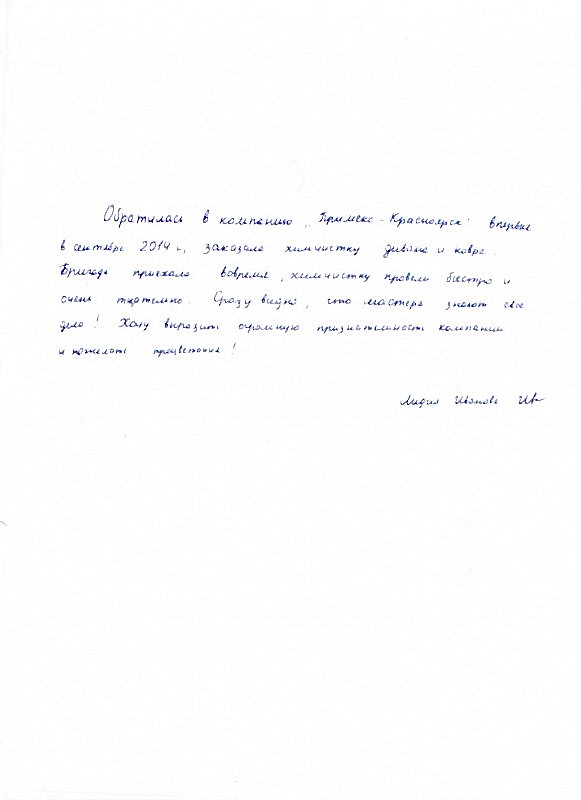 Обратилась в компанию „Примекс-Красноярск" впервые
в сентябре 2014 г., заказала химчистку дивана и ковра.
Бригада приехала вовремя, химчистку провели быстро и
очень тщательно. Сразу видно, что мастера знают свое
дело! Хочу выразить огромную признательность компании
и пожелать процветания!
Лидия Иванова